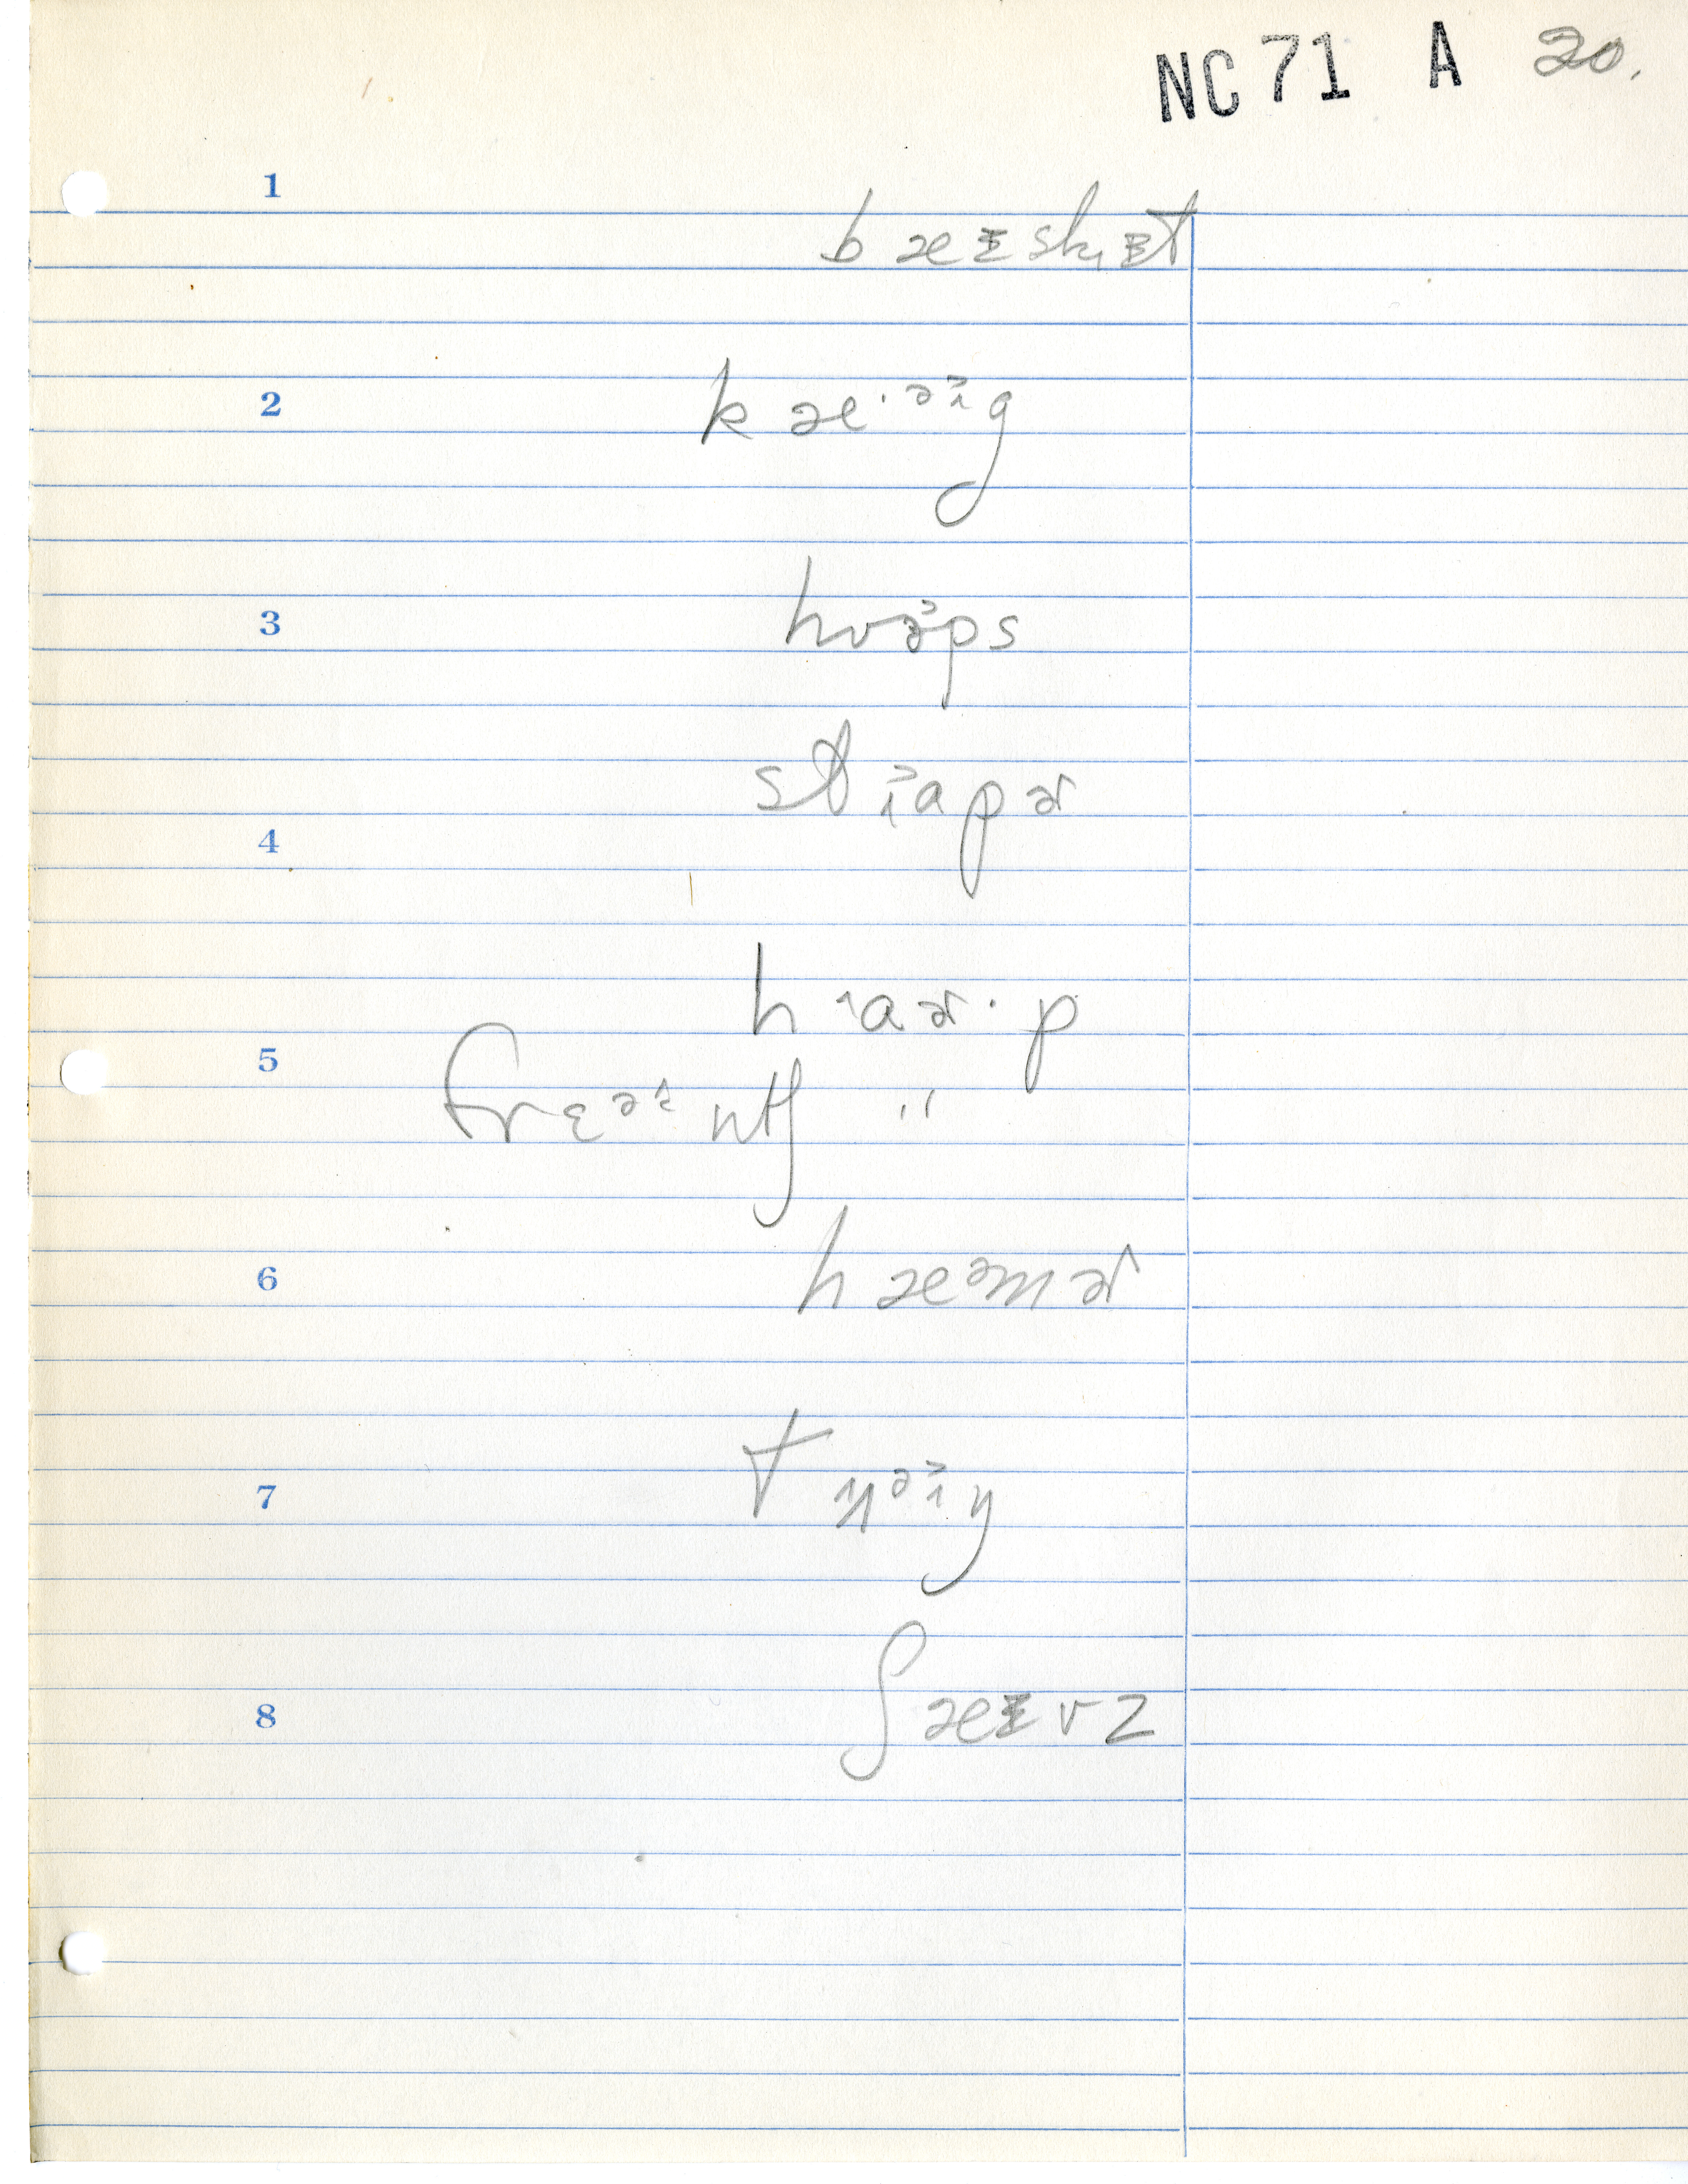 NC 71 A 20.
1
bæɪskɪt
2
kæ·əɪg
3
hʊəps
4
stɪapɚ
haɚ·p
5
frɛəntʃ "
6
hæəmɚ
7
8
ʃæɪvz